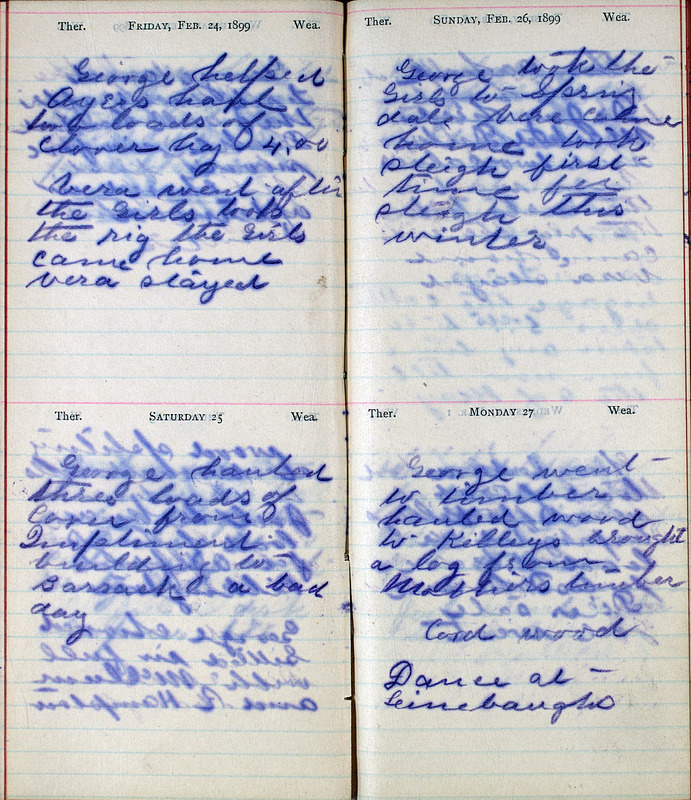 Ther. FRIDAY, FEB. 24, 1899 Wea.
George helped
Ayers haul
two loads of
clover hay 4.00
Vera went after
the Girls took
the rig the Girls
came home
Vera stayed
Ther. SATURDAY 25 Wea.
George hauled
three loads of
Corn from
Impliment
building to
a bad
day
Ther. SUNDAY, FEB. 26, 1899 Wea.
George took the
Girls to Spring
dale Vera came
home took
sleigh first
time for
sleigh this
winter
Ther. MONDAY 27 Wea.
George went
to timber
hauled wood
to Killeys brought
a log from
Mothers timber
Cord wood
Dance at
Leinebaughs